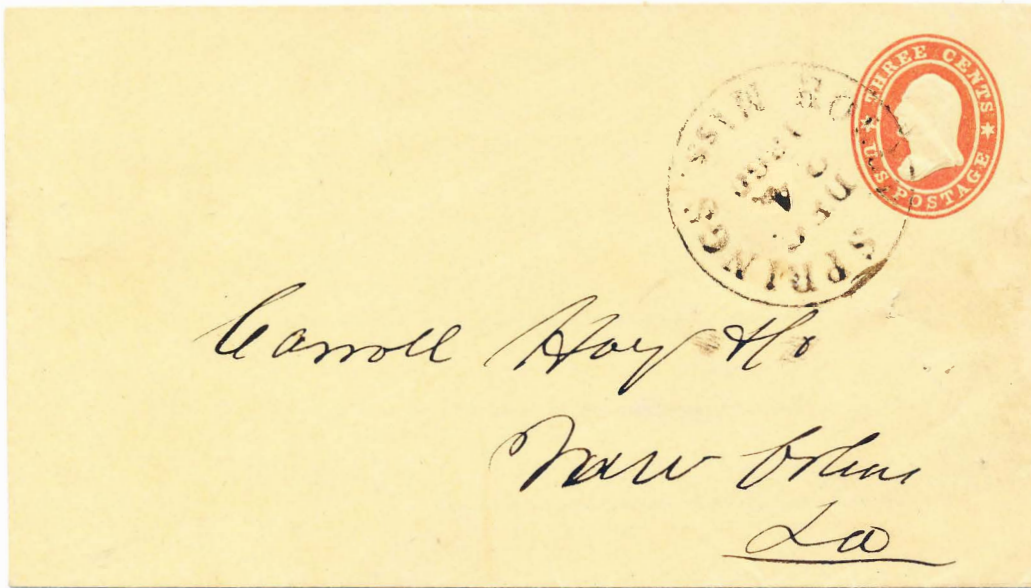 THREE CENTS
U.S. POSTAGE
SPRINGS MISS.
DEC
Carroll Hoy & Co
New Orleans
La